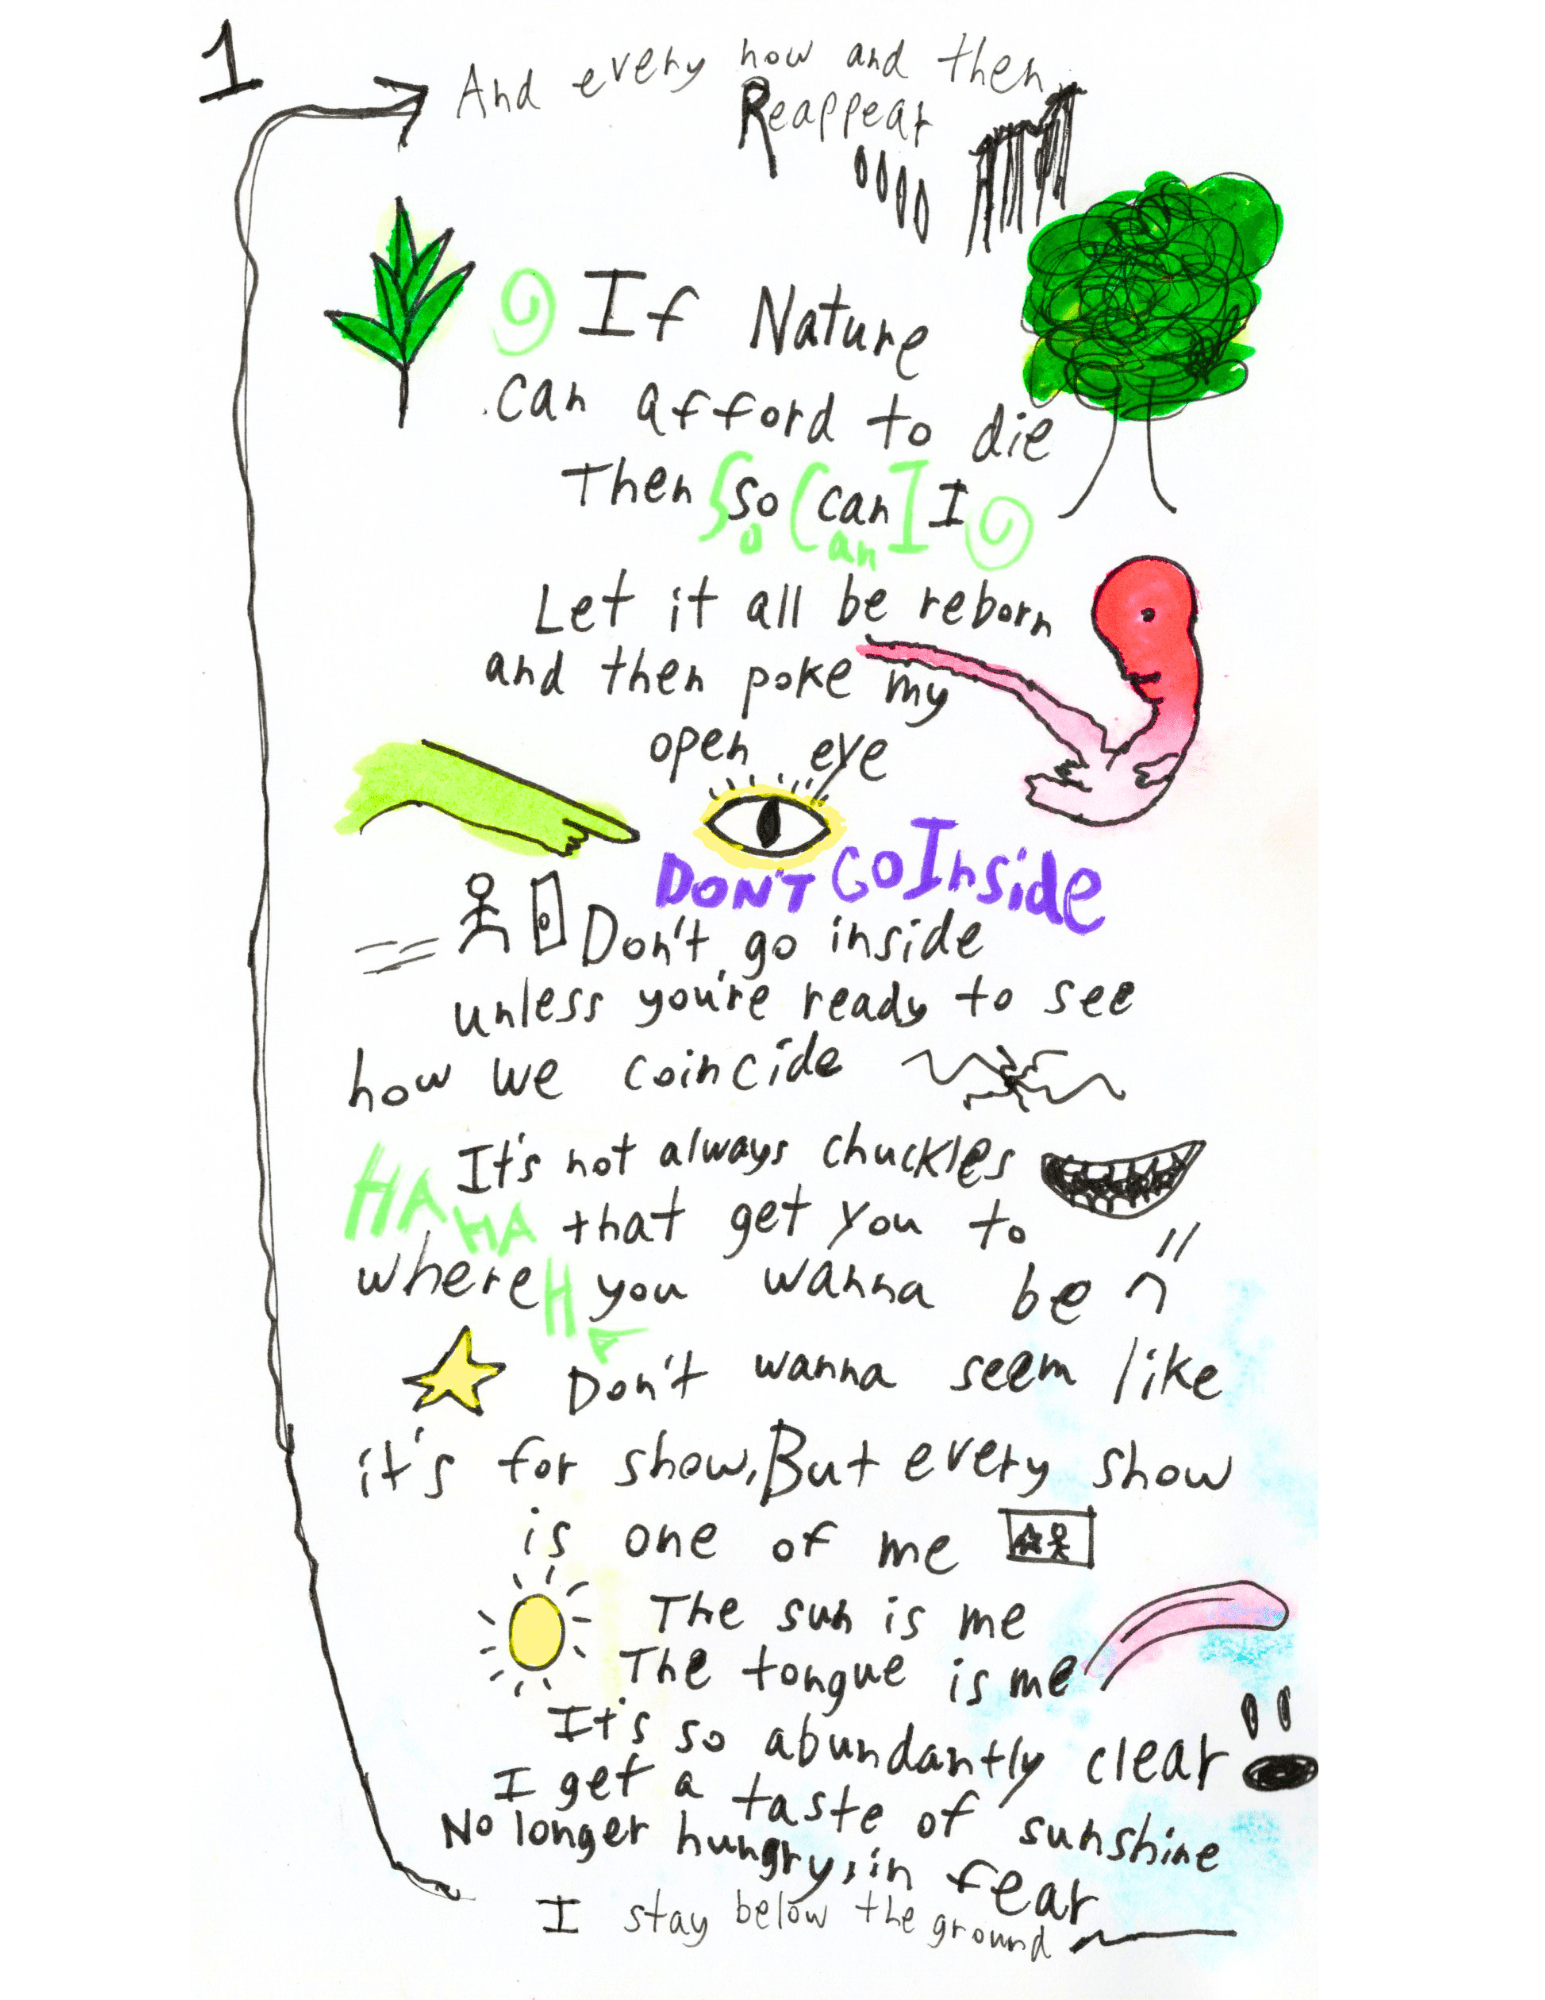 1
And every now and then
Reappear
If Nature
can afford to die
Then So so Can can I I
Let it all be reborn
and then poke my
open eye
DON'T GO Inside
Don't go inside
unless you're ready to see
how we coincide
It's not always chuckles
HA HA that get you to
where HA you wanna be
Don't wanna seem like
it's for show, But every show
is one of me
The sun is me
The tongue is me
It's so abundantly clear
I get a taste of sunshine
No longer hungry, in fear
I stay below the ground